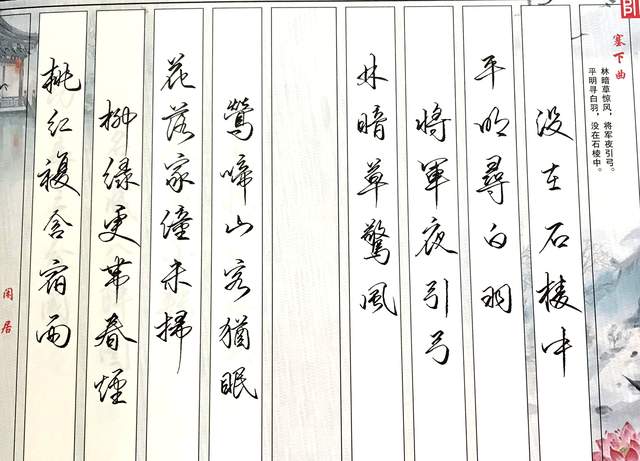 闲居
桃红複含宿雨
柳绿更帶春煙
花落家僮未掃
鶯啼山客猶眠
塞下曲
林暗草惊风，将军夜引弓。
平明寻白羽，没在石棱中。
林暗草驚風
將軍夜引弓
平明尋白羽
没在石棱中